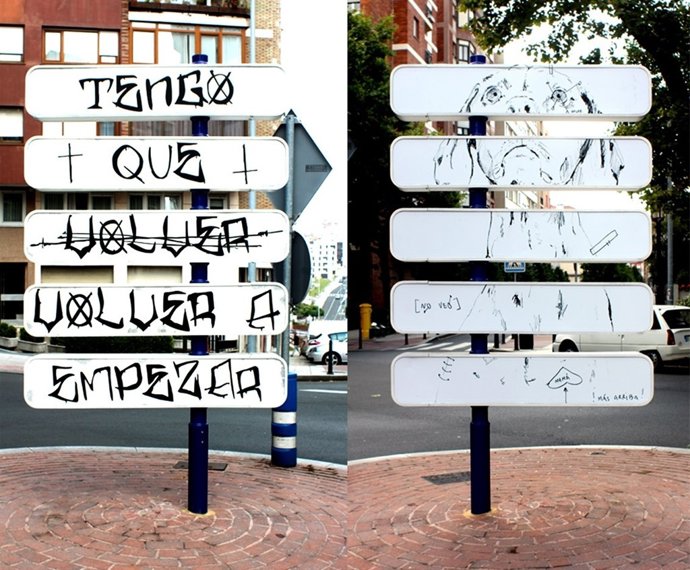 TENGO
† QUE †
VOLVER
VOLVER A
EMPEZAR
[NO VEO]
MAMÁ
¡MÁS ARRIBA!